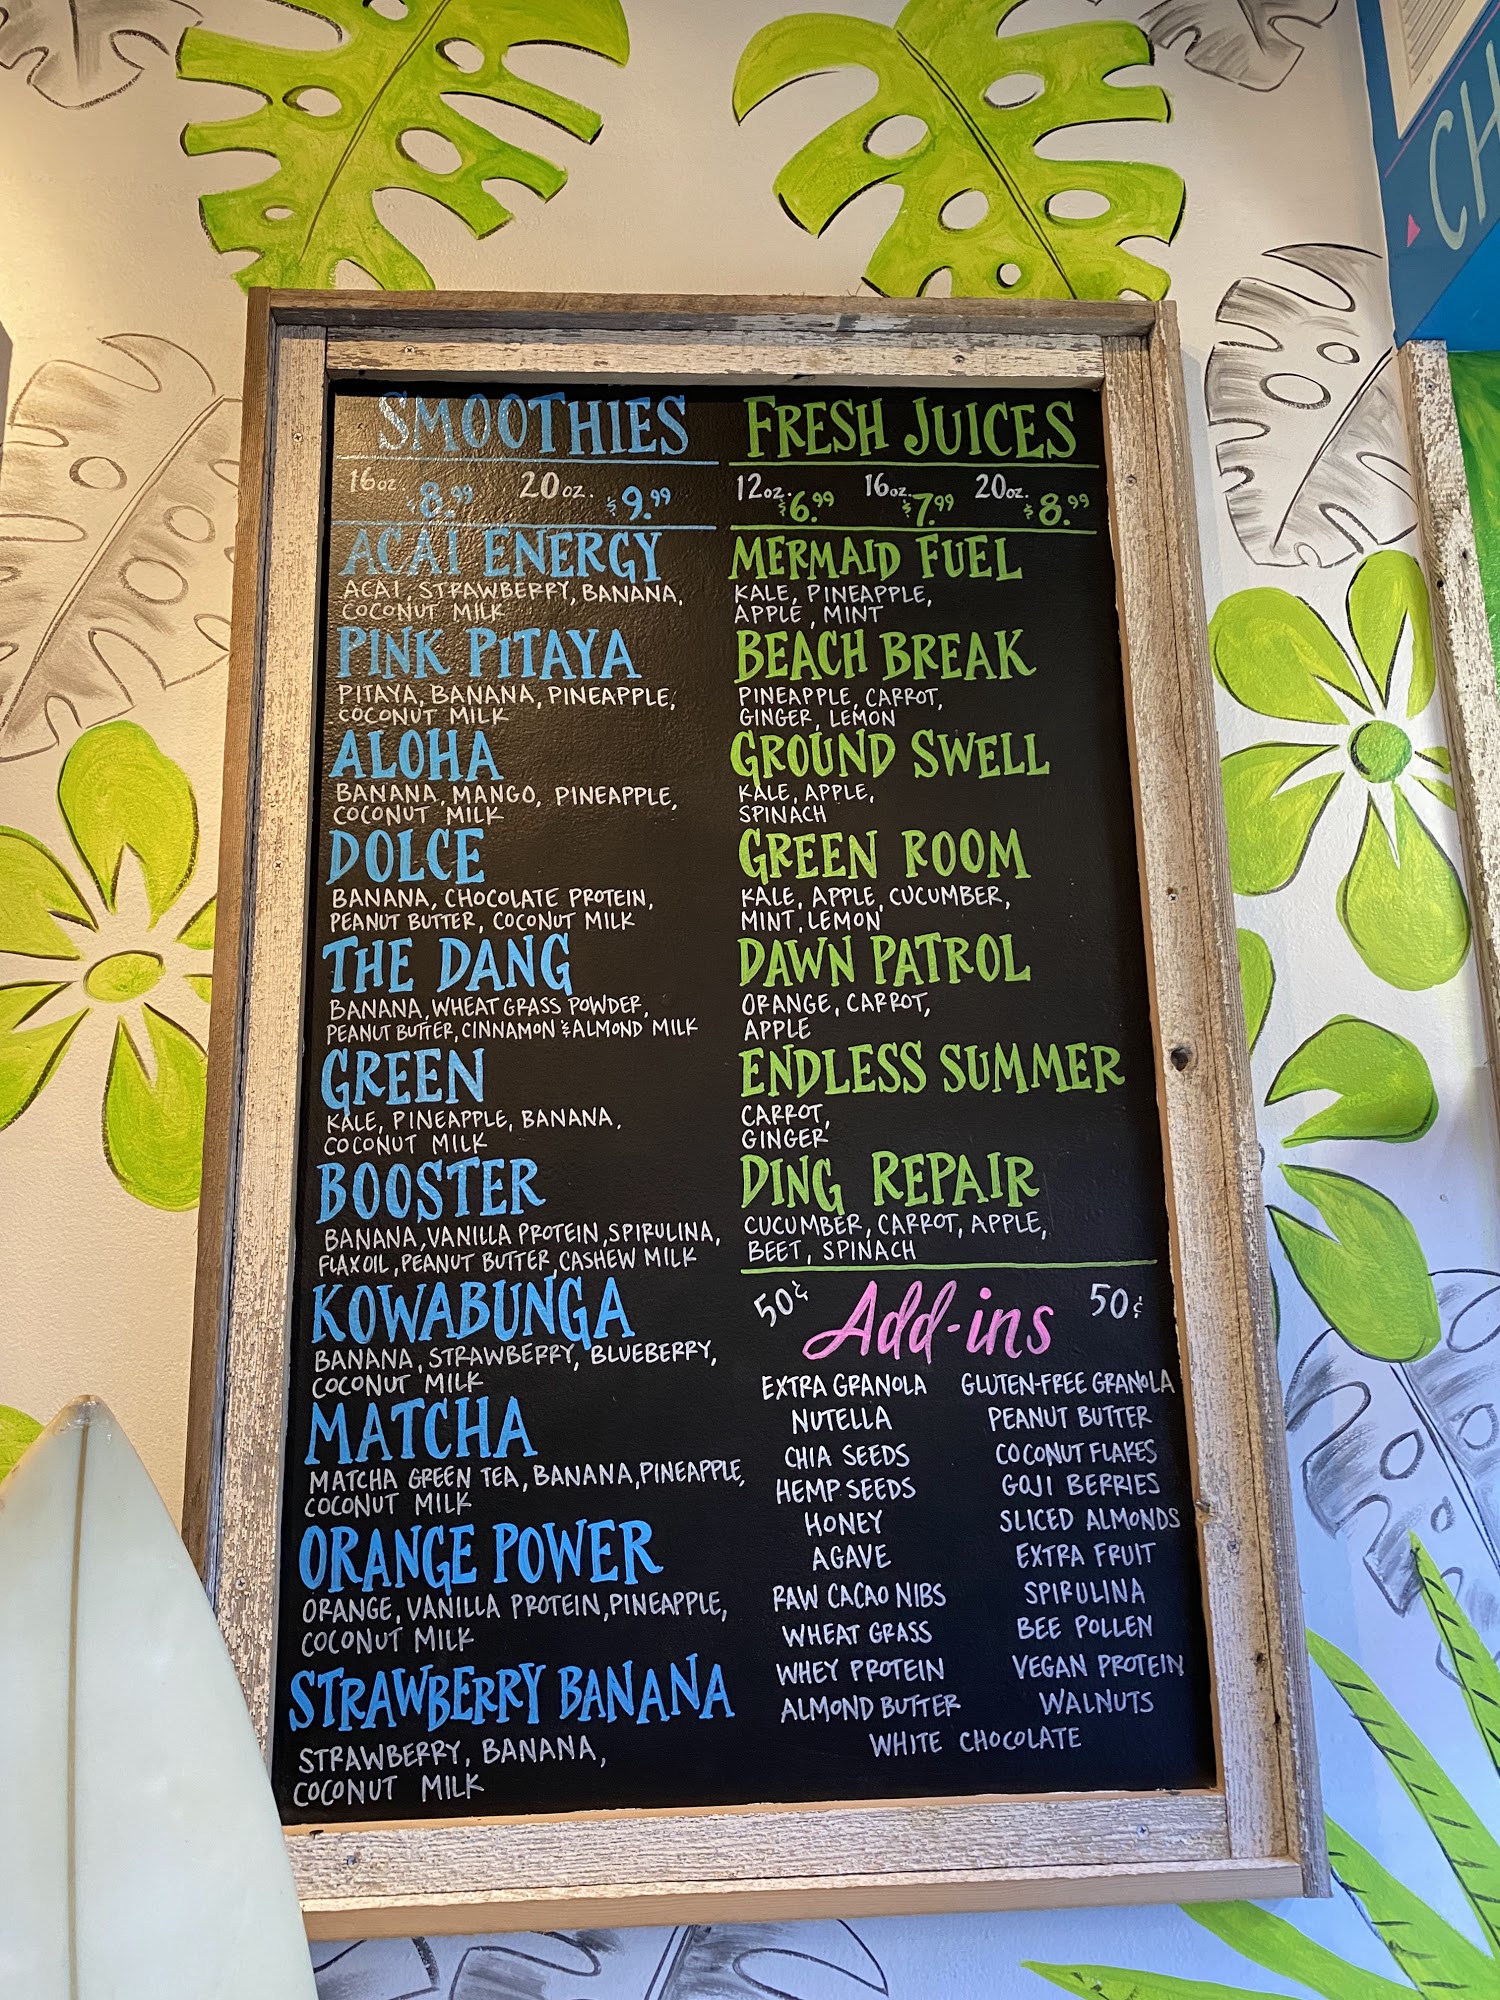 SMOOTHIES
16oz. $8.99 20oz. $9.99
ACAI ENERGY
ACAI, STRAWBERRY, BANANA,
COCONUT MILK
PINK PITAYA
PITAYA, BANANA, PINEAPPLE,
COCONUT MILK
ALOHA
BANANA, MANGO, PINEAPPLE,
COCONUT MILK
DOLCE
BANANA, CHOCOLATE PROTEIN,
PEANUT BUTTER, COCONUT MILK
THE DANG
BANANA, WHEAT GRASS POWDER,
PEANUT BUTTER, CINNAMON & ALMOND MILK
GREEN
KALE, PINEAPPLE, BANANA,
COCONUT MILK
BOOSTER
BANANA, VANILLA PROTEIN, SPIRULINA,
FLAX OIL, PEANUT BUTTER, CASHEW MILK
KOWABUNGA
BANANA, STRAWBERRY, BLUEBERRY,
COCONUT MILK
MATCHA
MATCHA GREEN TEA, BANANA, PINEAPPLE,
COCONUT MILK
ORANGE POWER
ORANGE, VANILLA PROTEIN, PINEAPPLE,
COCONUT MILK
STRAWBERRY BANANA
STRAWBERRY, BANANA,
COCONUT MILK
FRESH JUICES
12oz. $6.99 16oz. $7.99 20oz. $8.99
MERMAID FUEL
KALE, PINEAPPLE,
APPLE, MINT
BEACH BREAK
PINEAPPLE, CARROT,
GINGER, LEMON
GROUND SWELL
KALE, APPLE,
SPINACH
GREEN ROOM
KALE, APPLE, CUCUMBER,
MINT, LEMON
DAWN PATROL
ORANGE, CARROT,
APPLE
ENDLESS SUMMER
CARROT,
GINGER
DING REPAIR
CUCUMBER, CARROT, APPLE,
BEET, SPINACH
50¢ Add-ins 50¢
EXTRA GRANOLA GLUTEN-FREE GRANOLA
NUTELLA PEANUT BUTTER
CHIA SEEDS COCONUT FLAKES
HEMP SEEDS GOJI BERRIES
HONEY SLICED ALMONDS
AGAVE EXTRA FRUIT
RAW CACAO NIBS SPIRULINA
WHEAT GRASS BEE POLLEN
WHEY PROTEIN VEGAN PROTEIN
ALMOND BUTTER WALNUTS
WHITE CHOCOLATE
CH